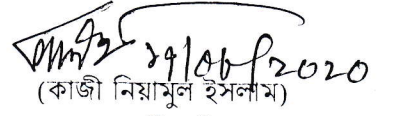 ১৭/০৮/২০২০
(কাজী নিয়ামুল ইসলাম)